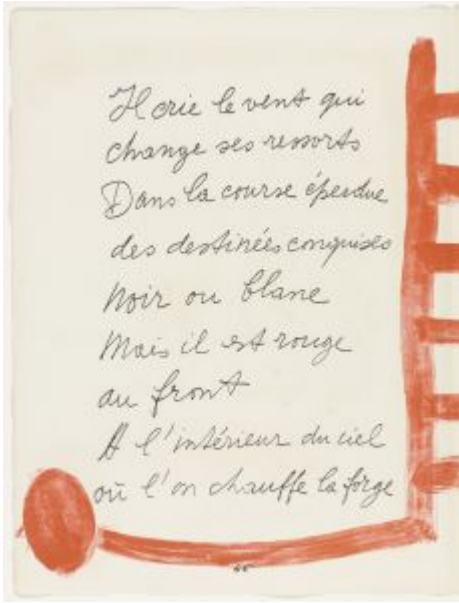 Il crie le vent qui
change ses ressorts
Dans la course éperdue
des destinées conquises
Noir ou blanc
Mais il est rouge
au front
A l'intérieur du ciel
où l'on chauffe la forge